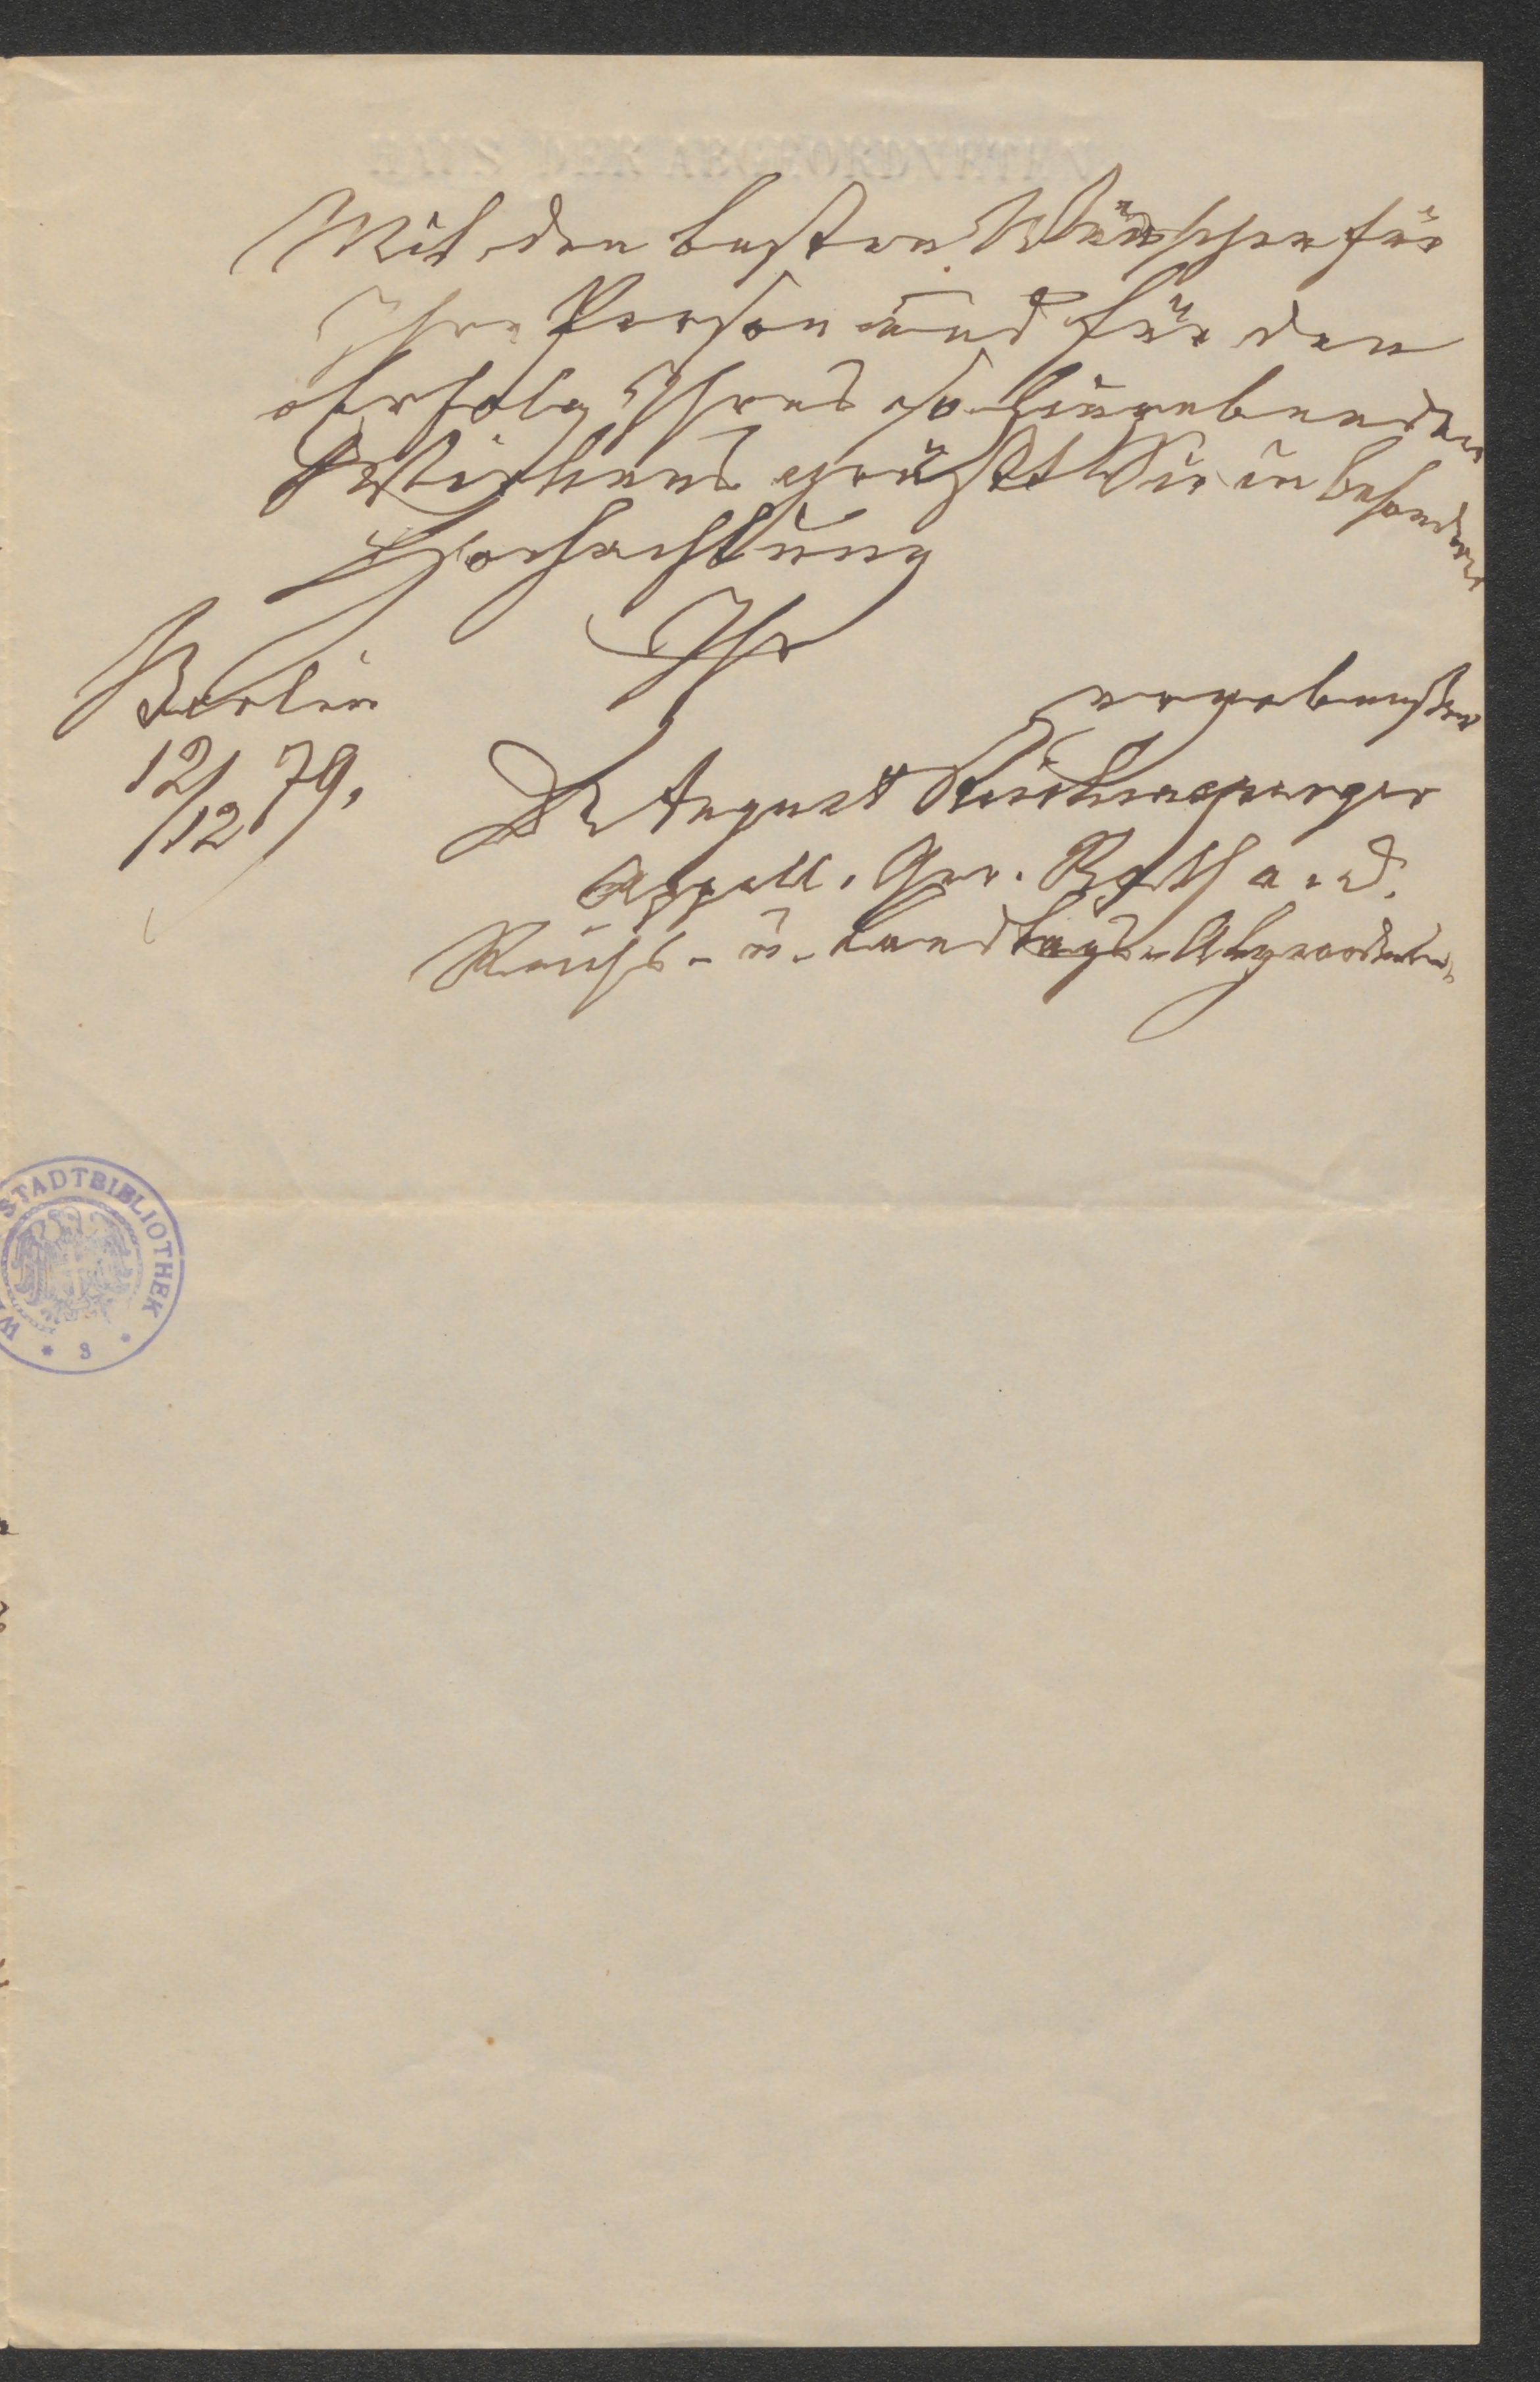 HAUS DER ABGEORDNETEN
Mit den besten Wünschen für
Ihre Person und für den
Erfolg Ihres so hingebenden
Wirkens grüßt Sie in besonderer
Hochachtung
Ihr
ergebenster
Berlin
12/12 79.
Dr August Reichensperger
Appell. Ger. Rath a. D.
Reichs- u. Landtags-Abgeordneter
STADTBIBLIOTHEK